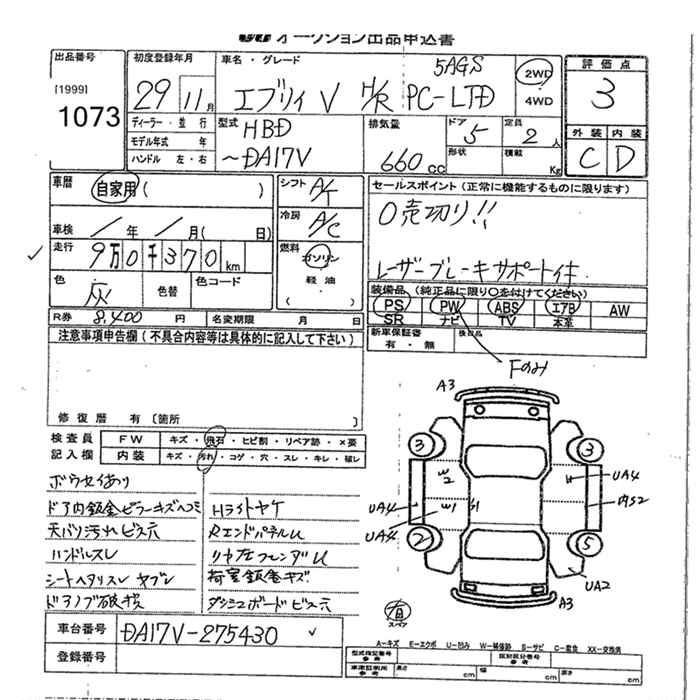 オークション出品申込書
出品番号
[1999]
1073
初度登録年月
29 11月
車名・グレード
エブリィV H/R PC-LTD
5AGS
2WD
4WD
評価点
3
外装 内装
C D
ディーラー・並行
モデル年式 年
ハンドル 左・右
型式
HBD
~DA17V
排気量
660cc
ドア 5
形状
定員 2人
積載 Kg
車歴 自家用( )
車検 / 年 / 月( 日)
走行 9万0千370km
色 灰 色替 色コード
シフト A/T
冷房 A/C
燃料
ガソリン
軽油
( )
セールスポイント(正常に機能するものに限ります)
0売切り!!
レーザーブレーキサポート付キ
装備品(純正品に限り○を付けてください)
PS PW ABS エアB AW
SR ナビ TV 本革
新車保証書 後日品
有・無
Fのみ
R券 8,400 円 名変期限 月 日
注意事項申告欄(不具合内容等は具体的に記入して下さい)
修復歴 有〔箇所 〕
検査員 FW キズ・飛石・ヒビ割・リペア跡・×要
記入欄 内装 キズ・汚れ・コゲ・穴・スレ・キレ・破レ
ボウセイあり
ドア内鈑金ピラーキズヘコミ
天バリ汚れビス穴
ハンドルスレ
シートヘタリスレ ヤブレ
ドアノブ破損
Hライトヤケ
RエンドパネルU
リヤ左フェンダU
荷室鈑金キズ
ダッシュボードビス穴
A3
3
3
UA4
内S2
UA4
UA4
2
5
UA2
A3
有
スペア
車台番号 DA17V-275430
登録番号
A-キズ E-エクボ U-凹み W-補修跡 S-サビ C-腐食 XX-交換済
型式指定番号
参考
類別区分番号
参考
車庫証明用
参考
長さ cm 幅 cm 高さ cm